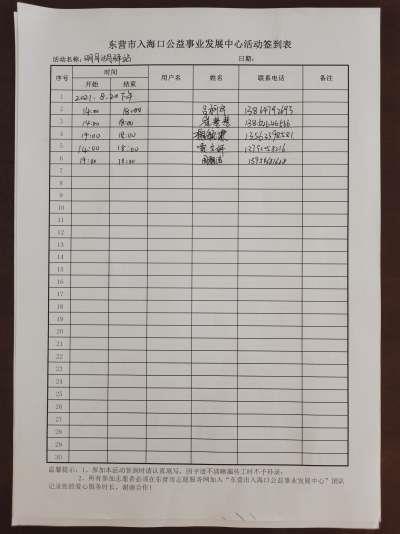 东营市入海口公益事业发展中心活动签到表
活动名称: 明月湖驿站 日期:
序号 时间 用户名 姓名 联系电话 备注
开始 结束
1 2021.8.20下午
2 14:00 18:00
3 14:00 18:00
4 14:00 18:00
5 14:00 18:00
6 14:00 18:00
7
8
9
10
11
12
13
14
15
16
17
18
19
20
21
22
23
24
25
26
27
28
29
30
温馨提示:1、参加本活动签到时请认真填写,因字迹不清晰漏掉工时不予补录;
2、所有参加志愿者必须在东营市志愿服务网加入“东营市入海口公益事业发展中心”团队
记录您的爱心服务时长,谢谢合作!